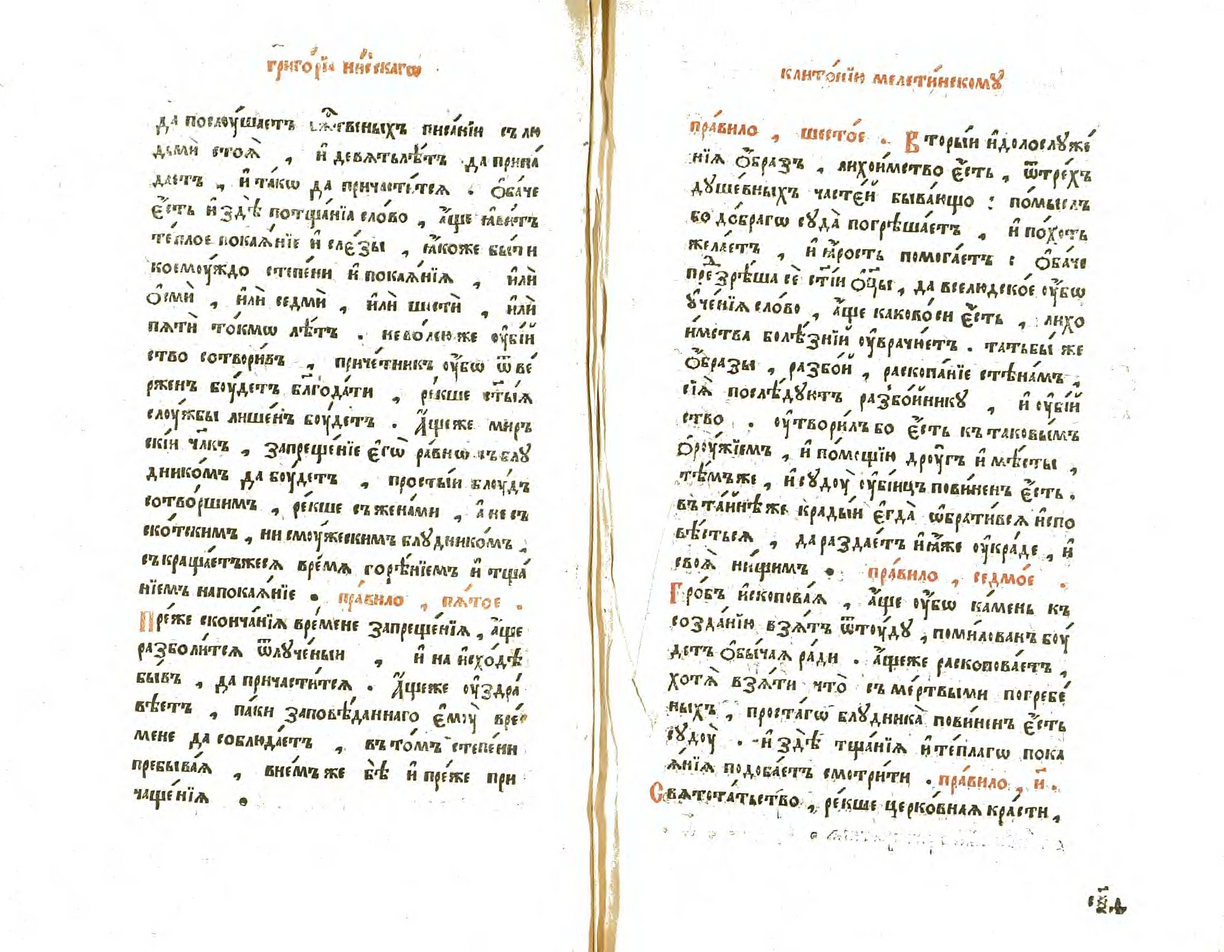 григо́рїа ни́сскагѡ
да послоу́шаетъ бж҃твеныхъ писа́нїи сълю
дьми́ стоѧ̀ , и҆ де́вѧтьлѣ́тъ да припа́
даетъ , и҆ та́кѡ да причасти́тсѧ . ѻ҆ба́че
є҆́сть и҆ здѣ̀ потща́нїѧ сло́во , а҆́ще ꙗ҆ви́тъ
те́плое покаѧ́нїе и҆ сле́зы , ꙗ҆́коже бы́ти
коемоу́ждо степе́ни и҆ покаѧ́нїѧ , и҆лѝ
ѻ҆смѝ , и҆лѝ седмѝ , и҆лѝ шестѝ , и҆лѝ
пѧтѝ то́кмѡ лѣ́тъ . нево́лею же оу҆бїй
ство сотвори́въ , приче́тникъ оу҆́бѡ ѿве́
рженъ боу́детъ блг҃ода́ти , ре́кше ст҃ы́ѧ
слоу́жбы лише́нъ боу́детъ . а҆́щеже мир
скі́й чл҃къ , запреще́нїе є҆гѡ̀ ра́внѡ съблу
днико́мъ да боу́детъ , просты́й блоу́дъ
сотво́ршимъ , ре́кше съжена́ми , а҆ не съ
ско́тскимъ , ни смоу́жескимъ блу́днико́мъ ,
съкраща́етъжесѧ вре́мѧ горѣ́нїемъ и҆ тща́
нїемъ напокаѧ́нїе . пра́вило , пѧ́тое .
Пре́же сконча́нїѧ вре́мене запреще́нїѧ , а҆́ще
разболи́тсѧ ѿлуче́ныи , и҆ на и҆схо́дѣ
бы́въ , да причасти́тсѧ . А҆́щеже оу҆здра́
вѣетъ , па́ки заповѣ́даннаго є҆мꙋ̀ вре́
мене да соблюда́етъ , въто́мъ степе́ни
пребыва́ѧ , вне́мъже бѣ̀ и҆ пре́же при
чаще́нїѧ .
къанто́нїю мелети́нскомꙋ
пра́вило , шесто́е . Вторы́й и҆долослуже́
нїѧ ѻ҆́бразъ , лихои́мство є҆́сть , ѿтре́хъ
душе́вныхъ часте́й быва́ющо : по́мыслъ
бо до́брагѡ суда̀ погрѣша́етъ , и҆ по́хоть
жела́етъ , и҆ ꙗ҆́рость помога́етъ : ѻ҆ба́че
презрѣ́ша се ст҃і́и ѻ҆ц҃ы̀ , да вселюдско́е оу҆́бѡ
уче́нїѧ сло́во , а҆́ще каково́ си є҆́сть , лихо
и́мства болѣ́знїй оу҆врачю́етъ . татьбы́ же
ѻ҆́бразы , разбо́й , раскопа́нїе стѣна́мъ ,
сїѧ̀ послѣ́дуютъ разбо́йнику , и҆ оу҆бїй
ство . оу҆твори́лъ бо є҆́сть къ таковы́мъ
ѻ҆роу́жїемъ , и҆ по́мощїю дроу́гъ и҆ мѣ́сты ,
тѣ́мъже , и҆ судоу̀ оу҆бі́ицъ пови́ненъ є҆́сть .
въта́йнѣже кра́дый є҆гда̀ ѡ҆брати́всѧ и҆спо
вѣ́стьсѧ , да разда́етъ и҆ ꙗ҆́же оу҆кра́де , и҆
своѧ̀ ни́щимъ . пра́вило , седмо́е .
Гро́бъ и҆скопова́ѧ , а҆́ще оу҆́бѡ ка́мень къ
созда́нїю взѧ́тъ ѿтоу́ду , поми́лованъ боу́
детъ ѻ҆бы́чаѧ ра́ди . а҆́щеже раскопова́етъ ,
хотѧ̀ взѧ́ти что̀ съме́ртвыми погребе́
ныхъ , проста́гѡ блудника̀ пови́ненъ є҆́сть
судоу̀ . и҆ здѣ̀ тща́нїѧ и҆ те́плагѡ пока
ѧ́нїѧ подоба́етъ смотри́ти . пра́вило , и҃ .
Свѧтота́тьство , ре́кше церко́внаѧ кра́сти ,